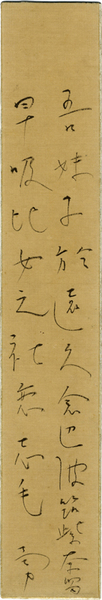 吾妹子於遠之久念巴波筑紫奈留
早吸比女之社恋志毛